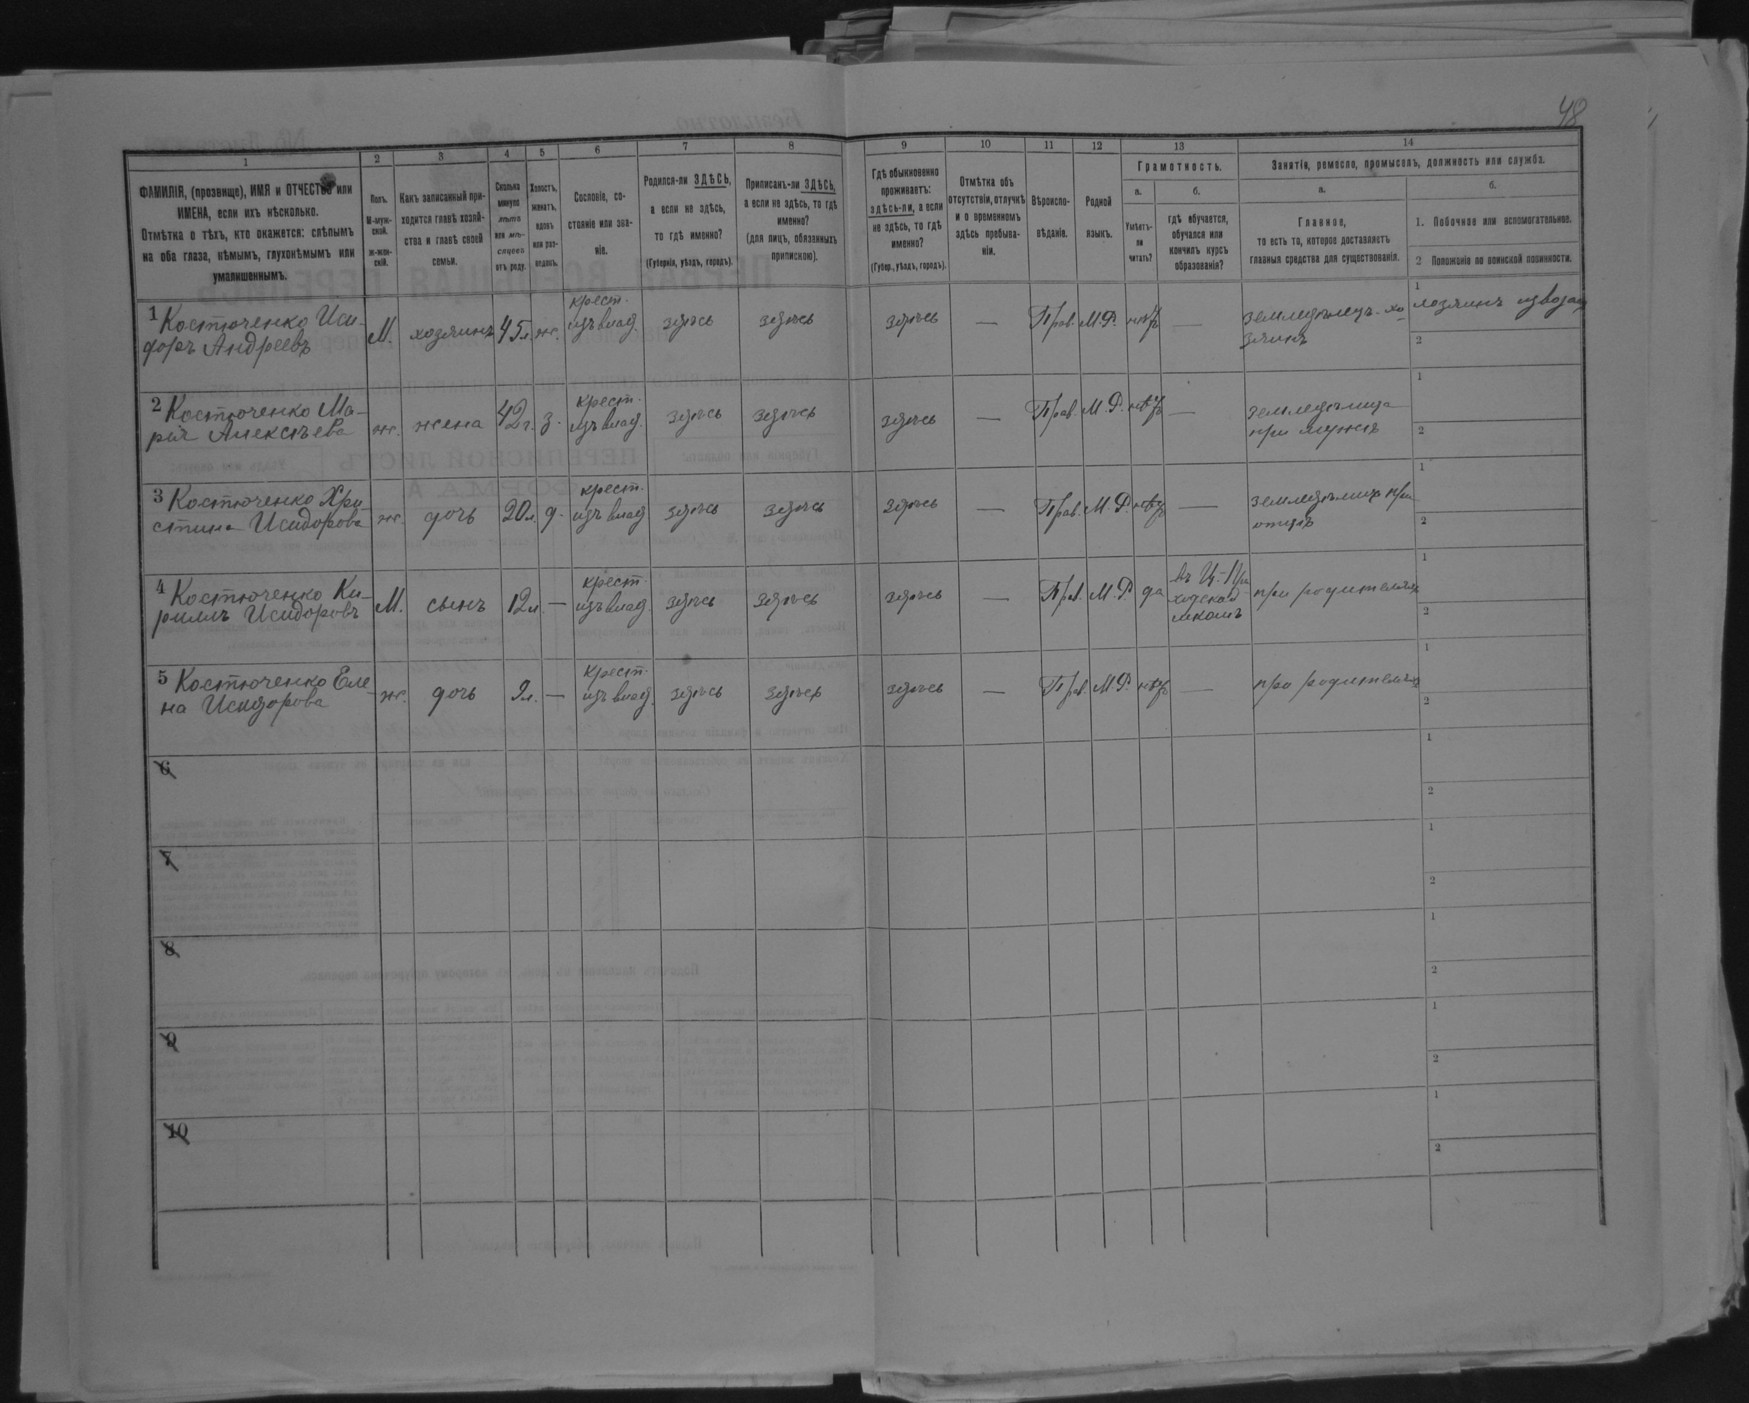 48
1 2 3 4 5 6 7 8 9 10 11 12 13 14
ФАМИЛІЯ, (прозвище), ИМЯ и ОТЧЕСТВО или
ИМЕНА, если ихъ нѣсколько.
Отмѣтка о тѣхъ, кто окажется: слѣпымъ
на оба глаза, нѣмымъ, глухонѣмымъ или
умалишеннымъ.
Полъ.
М-муж-
ской.
Ж-жен-
скій.
Какъ записанный при-
ходится главѣ хозяй-
ства и главѣ своей
семьи.
Сколько
минуло
лѣтъ
или мѣ-
сяцевъ
отъ роду.
Холостъ,
женатъ,
вдовъ
или раз-
веденъ.
Сословіе, со-
стояніе или зва-
ніе.
Родился-ли ЗДѢСЬ,
а если не здѣсь,
то гдѣ именно?
(Губернія, уѣздъ, городъ).
Приписанъ-ли ЗДѢСЬ,
а если не здѣсь, то гдѣ
именно?
(для лицъ, обязанныхъ
припискою).
Гдѣ обыкновенно
проживаетъ:
здѣсь-ли, а если
не здѣсь, то гдѣ
именно?
(Губер., уѣздъ, городъ).
Отмѣтка объ
отсутствіи, отлучкѣ
и о временномъ
здѣсь пребыва-
ніи.
Вѣроиспо-
вѣданіе.
Родной
языкъ.
Грамотность.
а.
Умѣетъ-
ли
читать?
б.
гдѣ обучается,
обучался или
кончилъ курсъ
образованія?
Занятіе, ремесло, промыселъ, должность или служба.
а.
Главное,
то есть то, которое доставляетъ
главныя средства для существованія.
б.
1. Побочное или вспомогательное.
2 Положеніе по воинской повинности.
1 Костюченко Иси-
доръ Андреевъ
М. хозяинъ 45 л. ж.
крест.
изъ влад.
здѣсь здѣсь здѣсь — Прав. М.Р. нѣтъ —
земледѣлецъ-хо-
зяинъ
1
2
2 Костюченко Ма-
рія Алексѣева
ж. жена 42 г. з.
крест.
изъ влад.
здѣсь здѣсь здѣсь — Прав. М.Р. нѣтъ —
земледѣлица
при мужѣ
1
2
3 Костюченко Хри-
стина Исидорова
ж. дочь 20 л. д.
крест.
изъ влад.
здѣсь здѣсь здѣсь — Прав. М.Р. нѣтъ —
земледѣлица при
отцѣ
1
2
4 Костюченко Ки-
риллъ Исидоровъ
М. сынъ 12 л. —
крест.
изъ влад.
здѣсь здѣсь здѣсь — Прав. М.Р. да
въ Ц.-При
ходской
школѣ
при родителяхъ
1
2
5 Костюченко Еле-
на Исидорова
ж. дочь 9 л. —
крест.
изъ влад.
здѣсь здѣсь здѣсь — Прав. М.Р. нѣтъ —
при родителяхъ
1
2
6
1
2
7
1
2
8
1
2
9
1
2
10
1
2